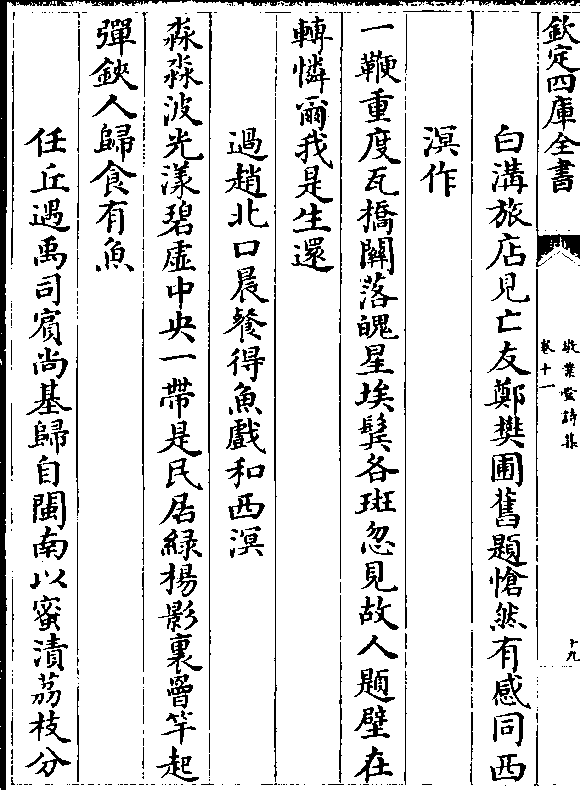 欽定四庫全書
敬業堂詩集
卷十一
十九
白溝旅店見亡友鄭樊圃舊題愴然有感同西
溟作
一鞭重度瓦橋關落魄星埃鬢各斑忽見故人題壁在
轉憐爾我是生還
過趙北口晨餐得魚戲和西溟
淼淼波光漾碧虛中央一帶是民居緑楊影裏罾竿起
彈鋏人歸食有魚
任丘遇禹司賓尚基歸自閩南以蜜漬荔枝分